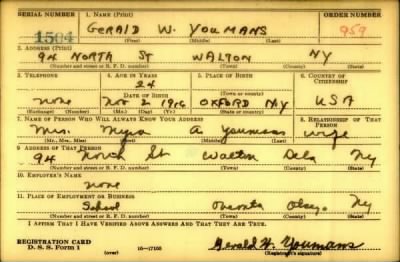 SERIAL NUMBER 1. NAME (Print) ORDER NUMBER
1504 GERALD W. YOUMANS 959
(First) (Middle) (Last)
2. ADDRESS (Print)
94 NORTH ST WALTON NY
(Number and street or R. F. D. number) (Town) (County) (State)
3. TELEPHONE 4. AGE IN YEARS 5. PLACE OF BIRTH 6. COUNTRY OF CITIZENSHIP
24
none DATE OF BIRTH OXFORD NY USA
Nov 2 1916
(Exchange) (Number) (Mo.) (Day) (Yr.) (Town or county) (State or country)
7. NAME OF PERSON WHO WILL ALWAYS KNOW YOUR ADDRESS 8. RELATIONSHIP OF THAT PERSON
Mrs. Myra A Youmans wife
(Mr., Mrs., Miss) (First) (Middle) (Last)
9. ADDRESS OF THAT PERSON
94 North St. Walton Dela Ny
(Number and street or R. F. D. number) (Town) (County) (State)
10. EMPLOYER'S NAME
none
11. PLACE OF EMPLOYMENT OR BUSINESS
School Oneonta Otsego Ny
(Number and street or R. F. D. number) (Town) (County) (State)
I AFFIRM THAT I HAVE VERIFIED ABOVE ANSWERS AND THAT THEY ARE TRUE.
REGISTRATION CARD
D. S. S. Form 1 (over) 16—17105 Gerald W. Youmans
(Registrant's signature)